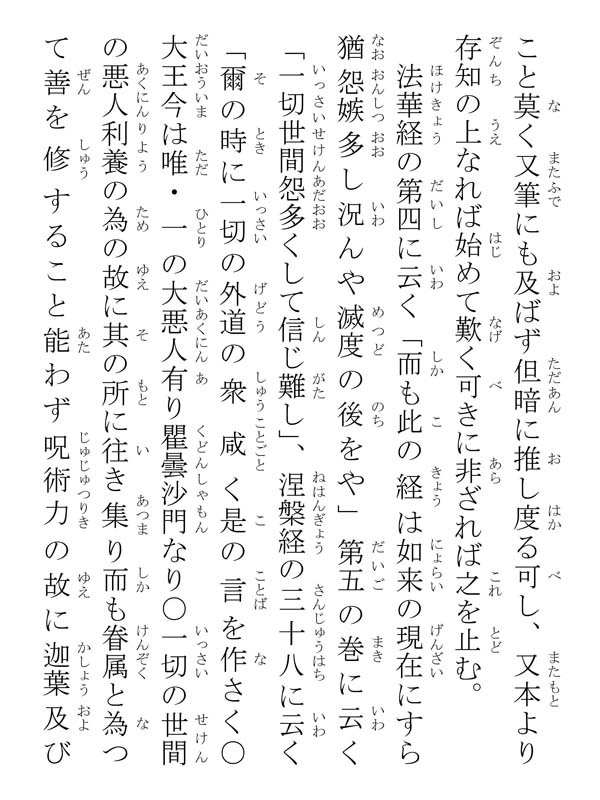 こと莫く又筆にも及ばず但暗に推し度る可し、又本より
存知の上なれば始めて歎く可きに非ざれば之を止む。
法華経の第四に云く「而も此の経は如来の現在にすら
猶怨嫉多し況んや滅度の後をや」第五の巻に云く
「一切世間怨多くして信じ難し」、涅槃経の三十八に云く
「爾の時に一切の外道の衆咸く是の言を作さく〇
大王今は唯・一の大悪人有り瞿曇沙門なり〇一切の世間
の悪人利養の為の故に其の所に往き集り而も眷属と為つ
て善を修すること能わず呪術力の故に迦葉及び